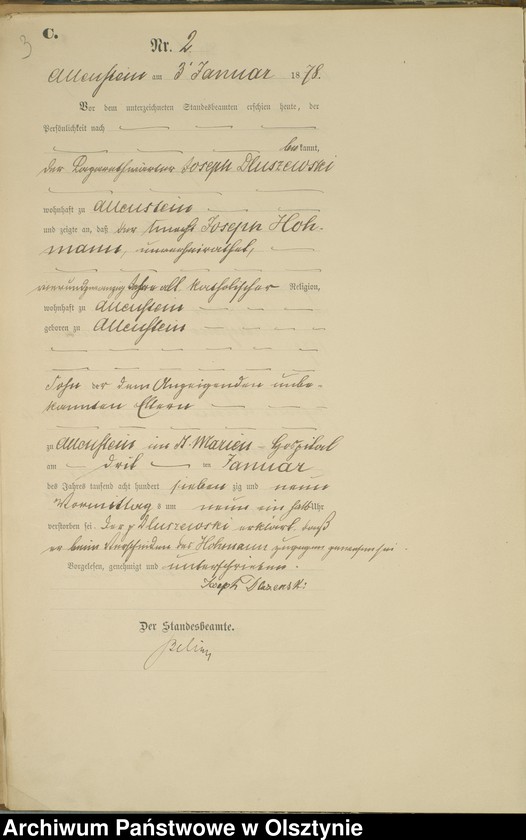 3
C.
Nr. 2
Allenstein am 3ᵗ Januar 1878.
Vor dem unterzeichneten Standesbeamten erschien heute, der
Persönlichkeit nach
bekannt,
der Lazarethwärter Joseph Dluszewski
wohnhaft zu Allenstein
und zeigte an, daß der Knecht Joseph Hoh-
mann, unverheirathet,
vierundzwanzig Jahre alt katholischer Religion,
wohnhaft zu Allenstein
geboren zu Allenstein
Sohn der dem Anzeigenden unbe-
kannten Eltern
zu Allenstein im St. Marien-Hospital
am drit ten Januar
des Jahres tausend acht hundert siebenzig und
Vormittags um neun ein halb Uhr
verstorben sei. Der p Dluszewski erklärt, daß
er beim Verscheiden des Hohmann zugegen gewesen sei.
Vorgelesen, genehmigt und unterschrieben.
Joseph
Der Standesbeamte.
Archiwum Państwowe w Olsztynie